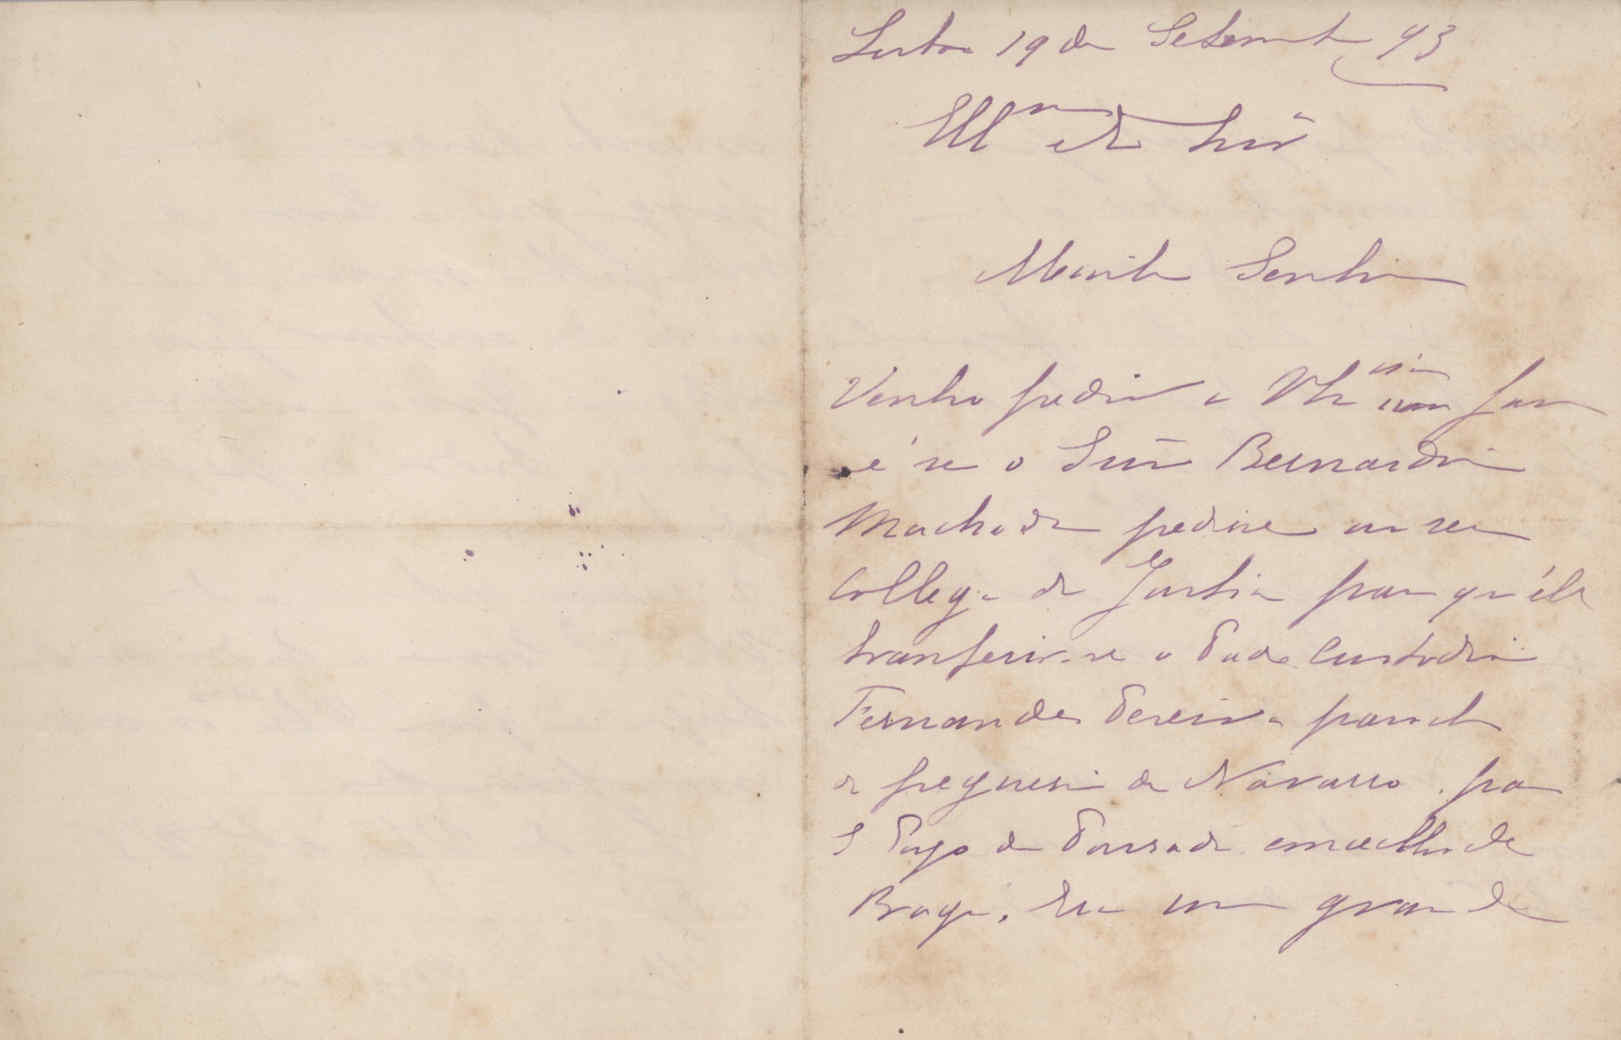 Lisboa 19 de Setembro 93
Illmo e Ex Snr
Muito Senhor
Venho pedir a Vh um fav
é se o Snr Bernardin
Machado pedisse ao seu
Collega da Justia para qu'éle
tranferir-se o Padre Custodio
Fernandes Pereira paroch
da freguesia de Navarro para
S Payo de Pousada concelho de
Braga. Era um grande